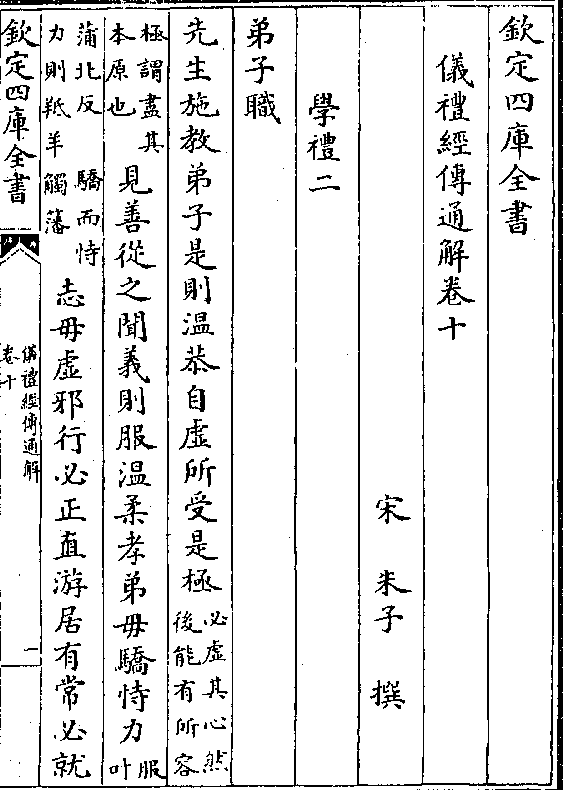 欽定四庫全書
儀禮經傳通解卷十
宋 朱子 撰
學禮二
弟子職
先生施教弟子是則温恭自虚所受是極必虚其心然後能有所容
極謂盡其本原也見善從之聞義則服温柔孝弟毋驕恃力服叶
蒲北反驕而恃力則羝羊觸藩志毋虚邪行必正直游居有常必就
欽定四庫全書
儀禮經傳通解
卷十
一